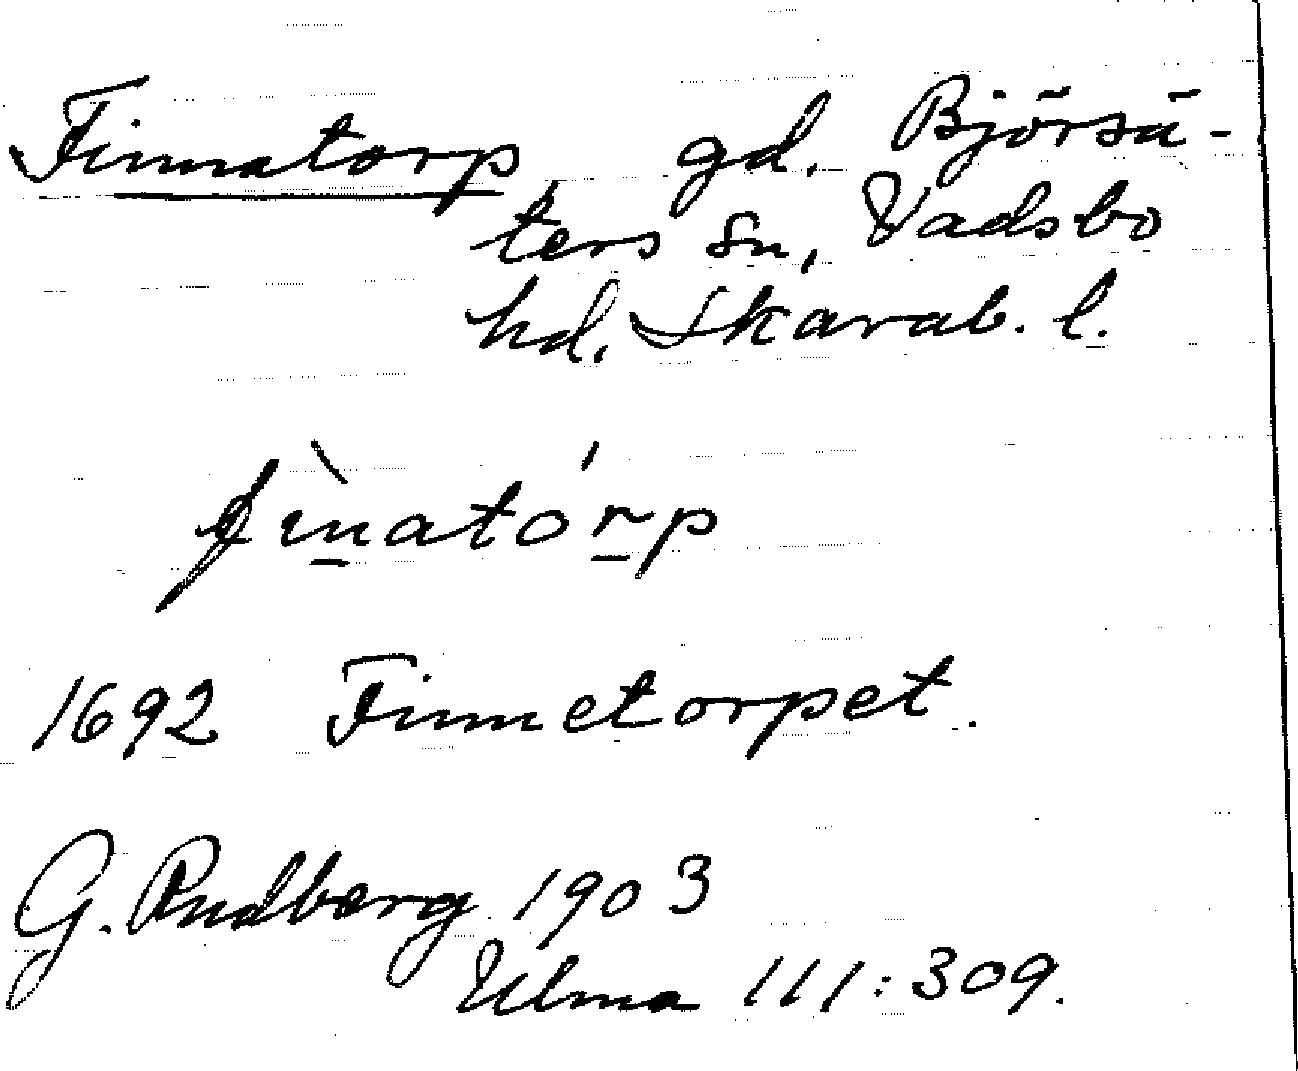 Finnatorp gd. Björsä-
ters sn, Vadsbo
hd. Skarab. l.
fìnató̱rp
1692 Finnetorpet.
G. Rudberg 1903
Ulma 111:309.